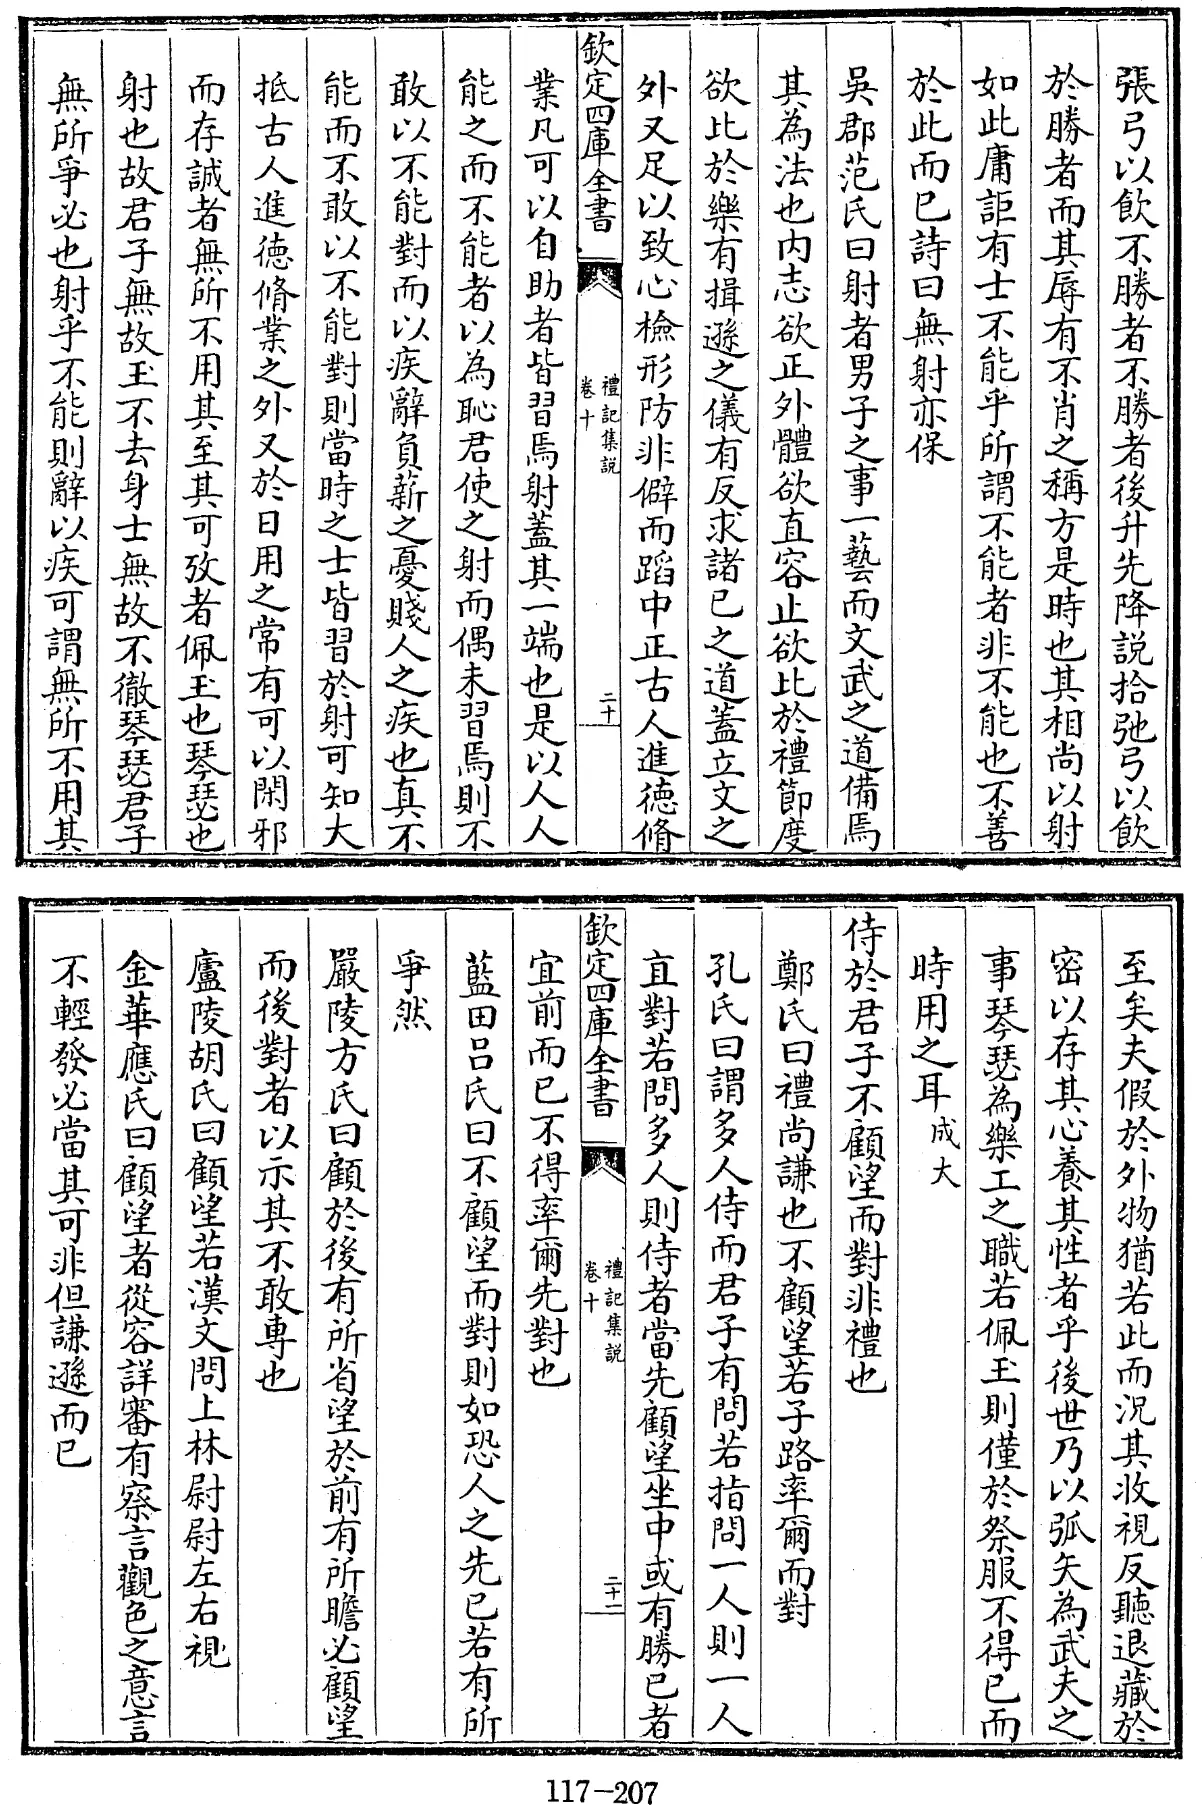 張弓以飲不勝者不勝者後升先降説拾弛弓以飲
於勝者而其辱有不肖之稱方是時也其相尚以射
如此庸詎有士不能乎所謂不能者非不能也不善
於此而已詩曰無射亦保
吳郡范氏曰射者男子之事一藝而文武之道備焉
其為法也内志欲正外體欲直容止欲比於禮節度
欲比於樂有揖遜之儀有反求諸已之道蓋立文之
外又足以致心檢形防非僻而蹈中正古人進徳脩
欽定四庫全書
禮記集説
卷十
二十
業凡可以自助者皆習焉射蓋其一端也是以人人
能之而不能者以為恥君使之射而偶未習焉則不
敢以不能對而以疾辭負薪之憂賤人之疾也真不
能而不敢以不能對則當時之士皆習於射可知大
抵古人進徳脩業之外又於日用之常有可以閑邪
而存誠者無所不用其至其可攷者佩玉也琴瑟也
射也故君子無故玉不去身士無故不徹琴瑟君子
無所爭必也射乎不能則辭以疾可謂無所不用其
至矣夫假於外物猶若此而況其收視反聽退藏於
密以存其心養其性者乎後世乃以弧矢為武夫之
事琴瑟為樂工之職若佩玉則僅於祭服不得已而
時用之耳成大
侍於君子不顧望而對非禮也
鄭氏曰禮尚謙也不顧望若子路率爾而對
孔氏曰謂多人侍而君子有問若指問一人則一人
直對若問多人則侍者當先顧望坐中或有勝已者
欽定四庫全書
禮記集説
卷十
二十一
宜前而已不得率爾先對也
藍田吕氏曰不顧望而對則如恐人之先已若有所
爭然
嚴陵方氏曰顧於後有所省望於前有所瞻必顧望
而後對者以示其不敢專也
廬陵胡氏曰顧望若漢文問上林尉尉左右視
金華應氏曰顧望者從容詳審有察言觀色之意言
不輕發必當其可非但謙遜而已
117-207